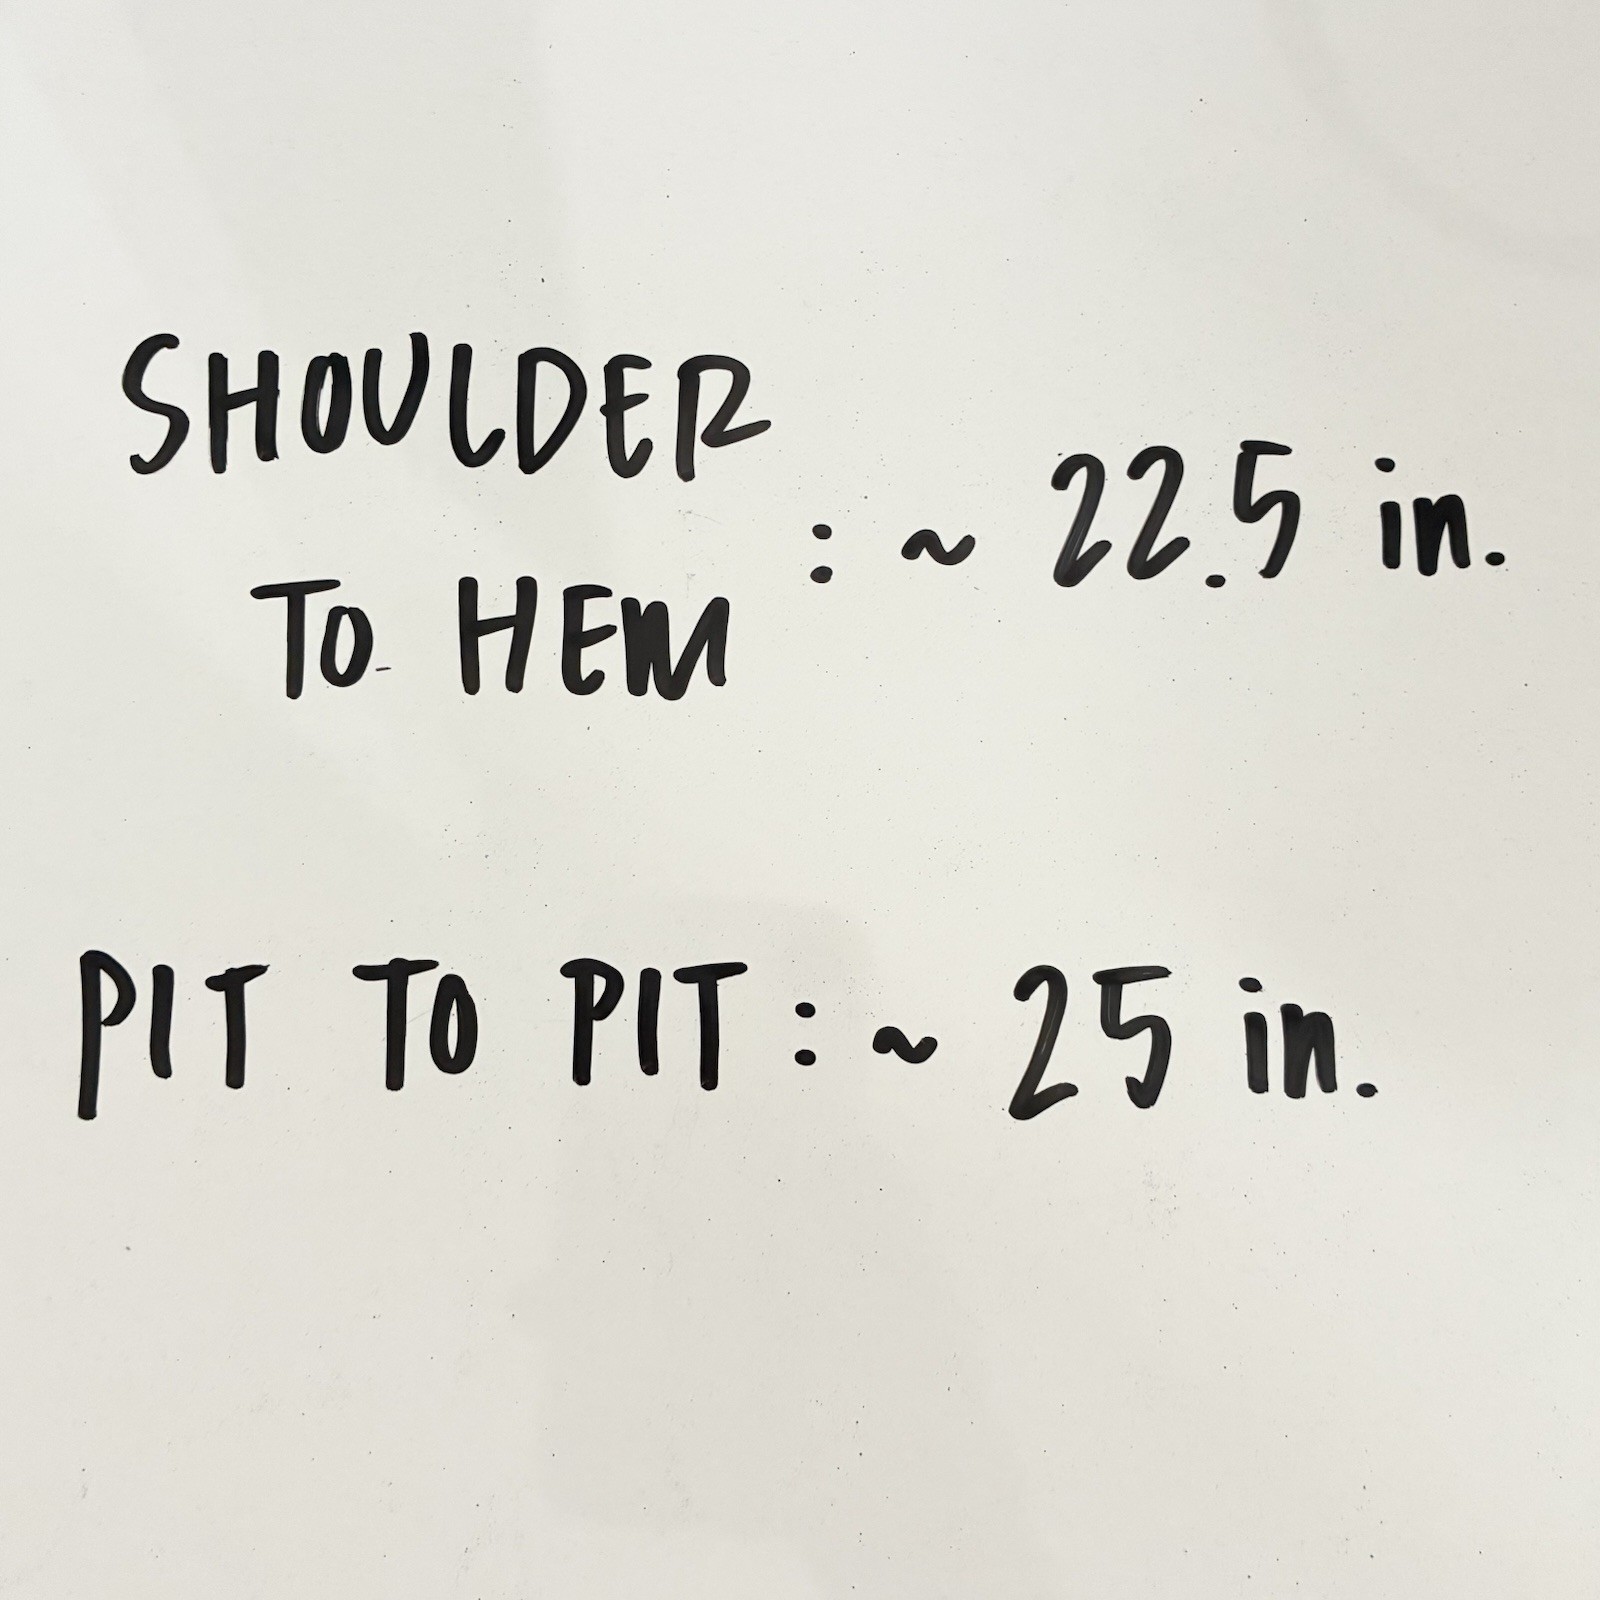 SHOULDER
TO HEM : ~ 22.5 in.
PIT TO PIT : ~ 25 in.